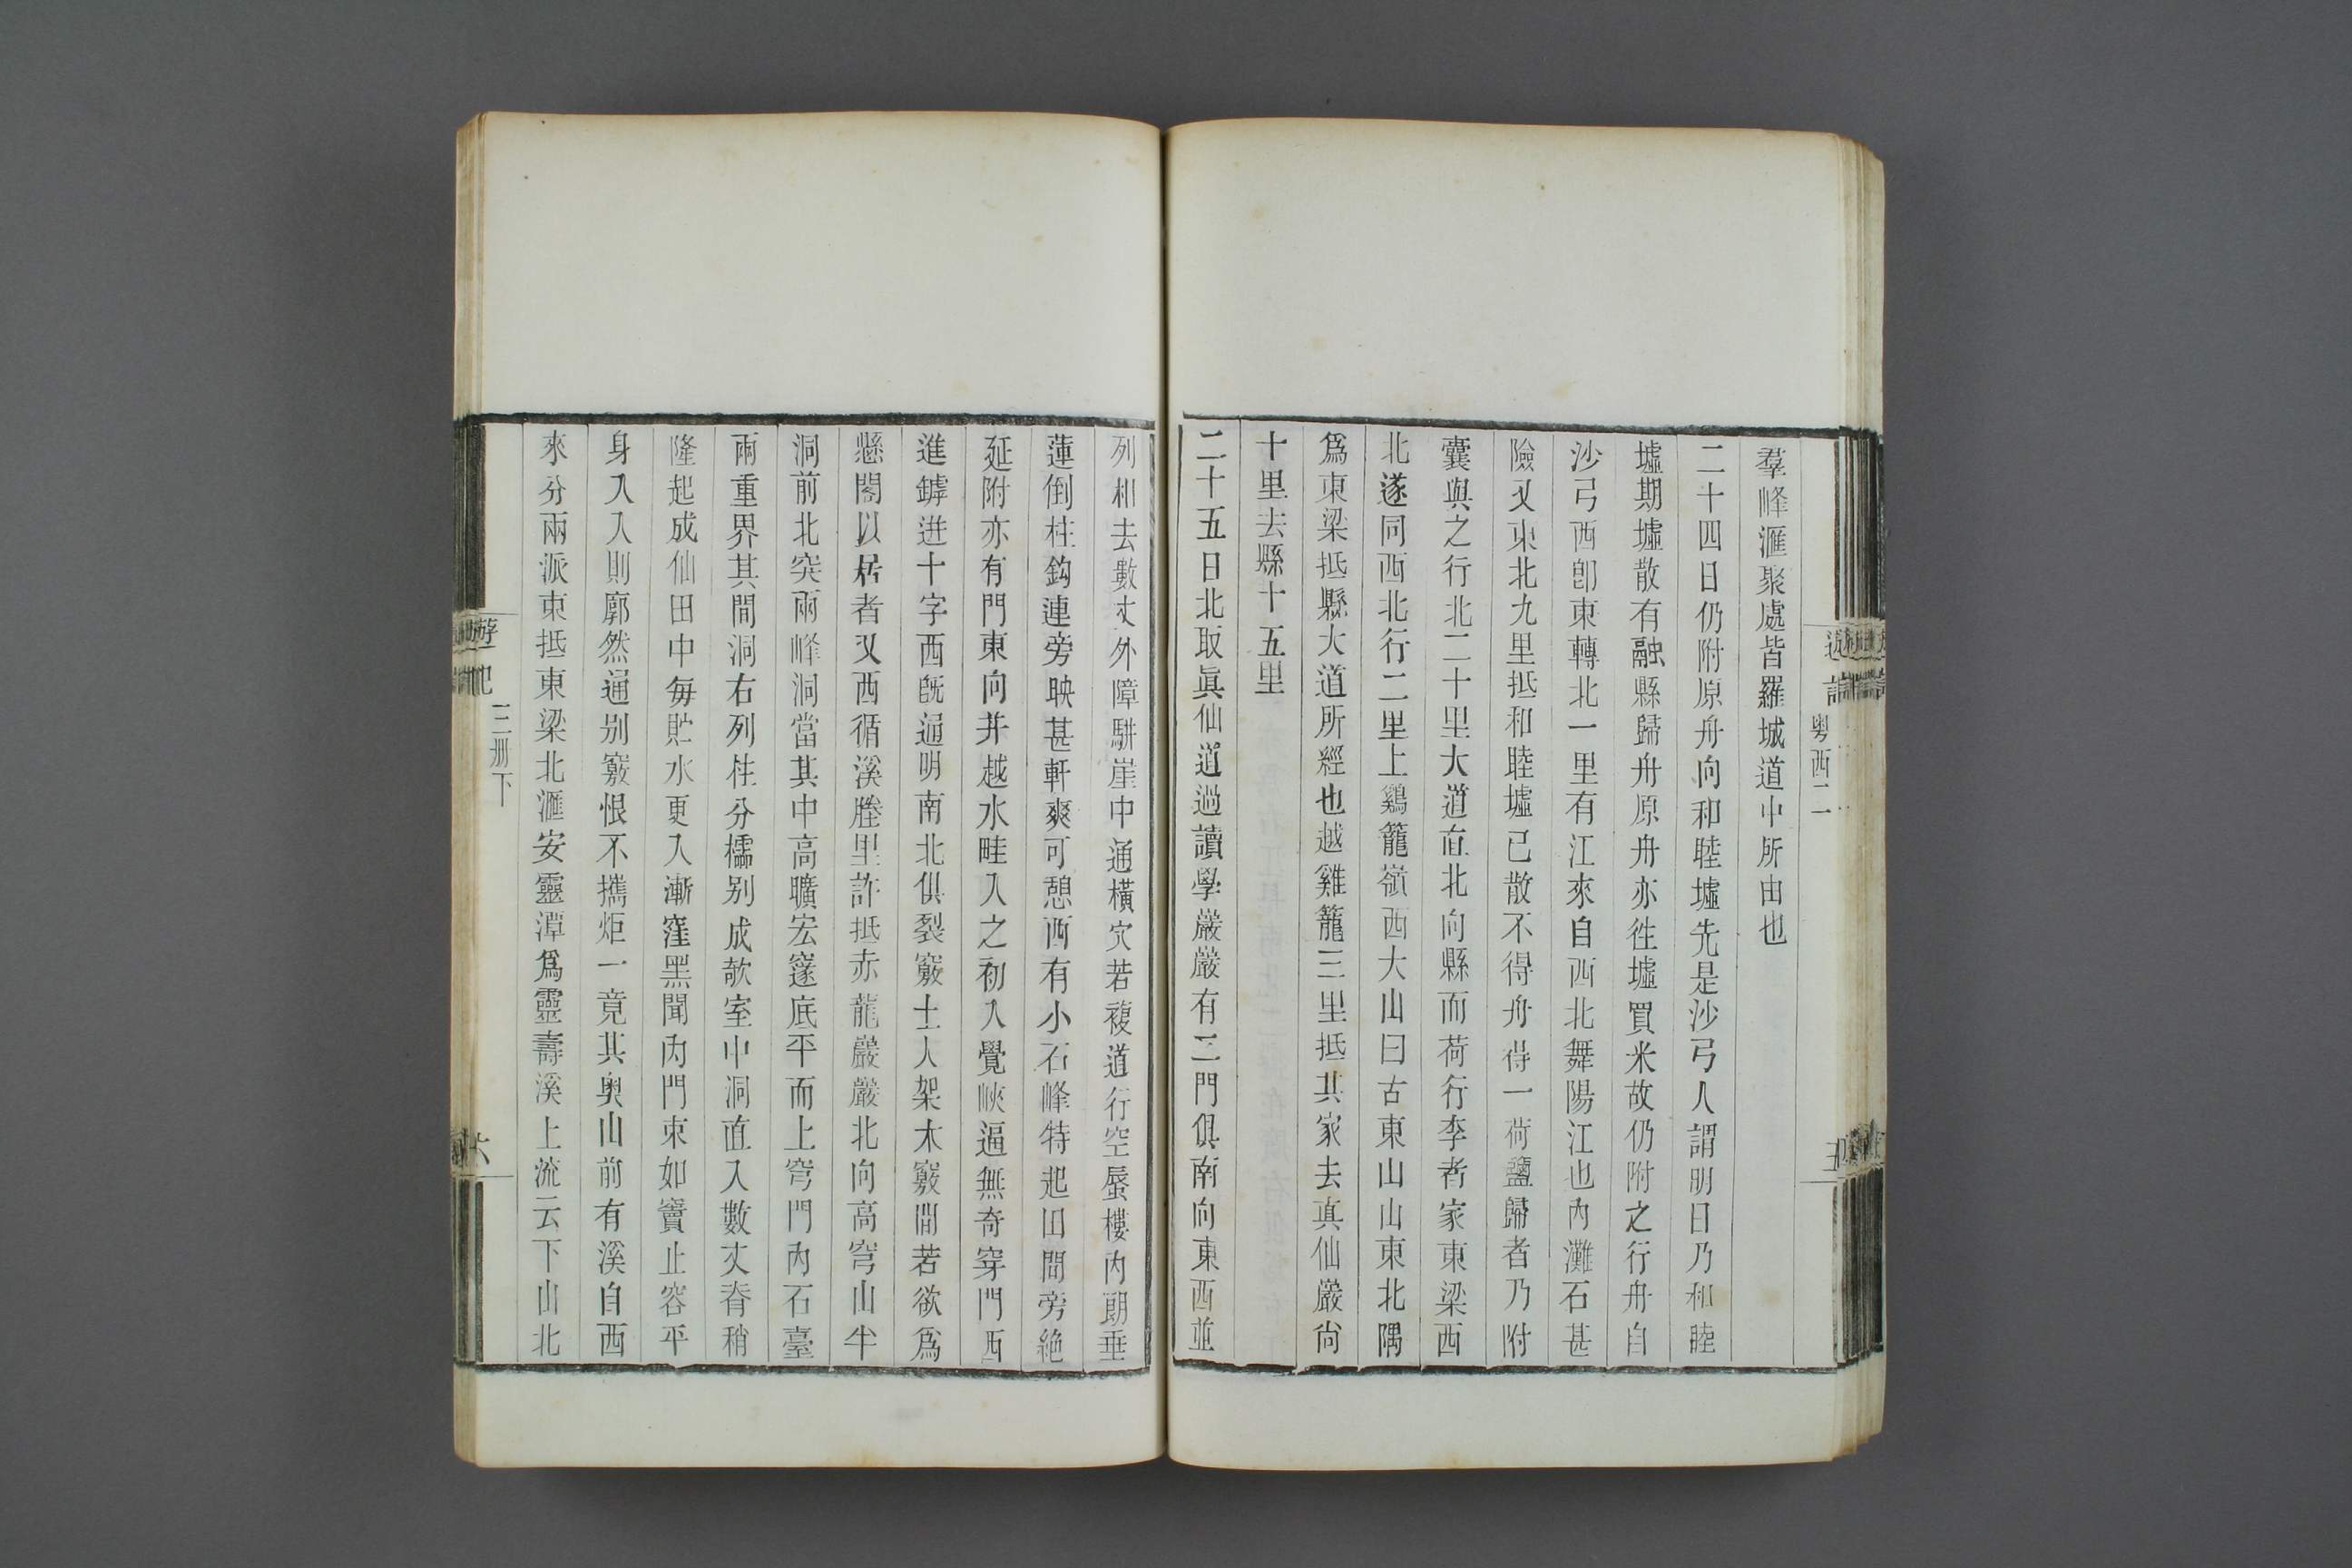 羣峰滙聚處皆羅城道中所由也
二十四日仍附原舟向和睦墟先是沙弓人謂明日乃和睦
墟期墟散有融縣歸舟原舟亦徃墟買米故仍附之行舟自
沙弓西卽東轉北一里有江來自西北舞陽江也內灘石甚
險又東北九里抵和睦墟已散不得舟得一荷鹽歸者乃附
囊與之行北二十里大道直北向縣而荷行李者家東梁西
北遂同西北行二里上鷄籠嶺西大山曰古東山山東北隅
爲東梁抵縣大道所經也越雞籠三里抵其家去真仙巖尙
十里去縣十五里
二十五日北取眞仙道過讀學巖巖有三門俱南向東西並
列相去數丈外障駢崖中通橫穴若複道行空蜃樓內朗垂
蓮倒柱鈎連旁映甚軒爽可憩西有小石峰特起田間旁絶
延附亦有門東向并越水畦入之初入覺峽逼無奇穿門西
進罅迸十字西旣通明南北俱裂竅土人架木竅間若欲爲
懸閣以居者又西循溪塍里許抵赤龍巖巖北向高穹山半
洞前北突兩峰洞當其中高曠宏邃底平而上穹門內石臺
兩重界其間洞右列柱分櫺別成欹室中洞直入數丈脊稍
隆起成仙田中每貯水更入漸窪黑聞內門束如竇止容平
身入入則廓然通別竅恨不攜炬一竟其奥山前有溪自西
來分兩派東抵東梁北滙安靈潭爲靈壽溪上流云下山北
粤西二
遊記
三册下
六